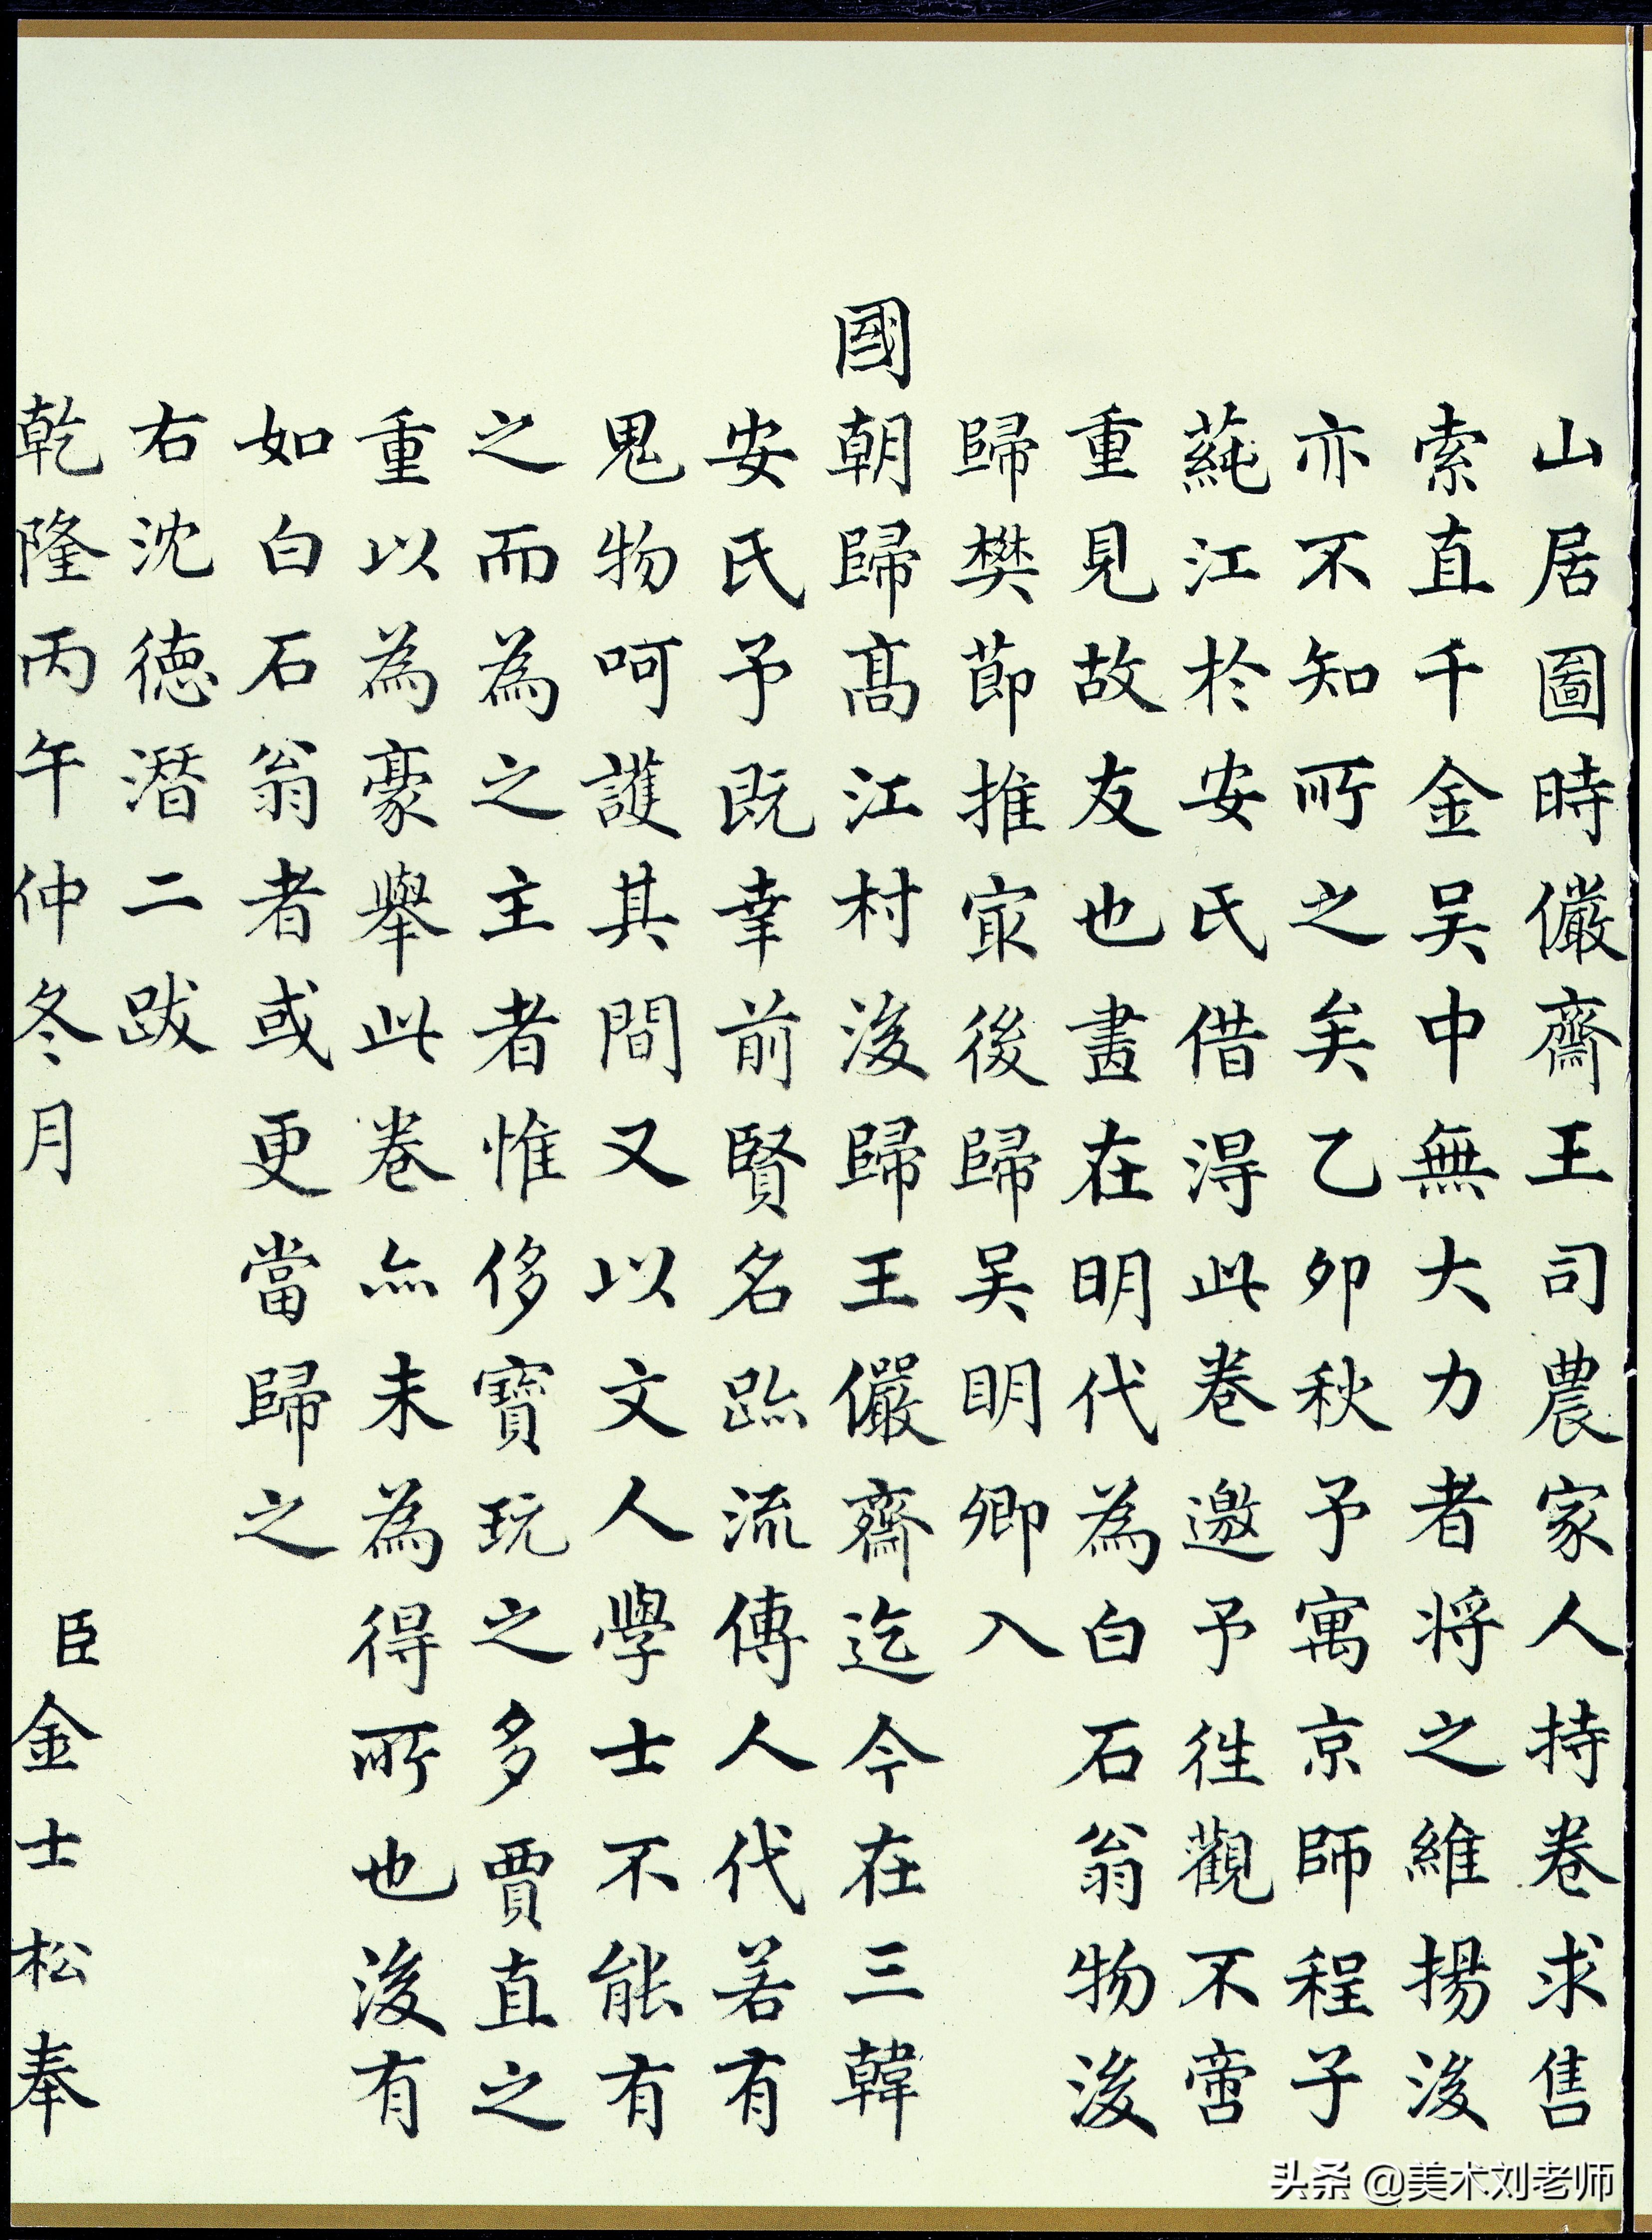 山居圖時儼齋王司農家人持卷求售
索直千金吴中無大力者将之維揚後
亦不知所之矣乙卯秋予寓京師程子
蒓江於安氏借得此卷邀予徃觀不啻
重見故友也畫在明代為白石翁物後
歸樊節推冣後歸吴明卿入
國朝歸髙江村後歸王儼齋迄今在三韓
安氏予既幸前賢名跡流傳人代若有
鬼物呵護其間又以文人學士不能有
之而為之主者惟侈寶玩之多賈直之
重以為豪舉此卷亦未為得所也後有
如白石翁者或更當歸之
右沈德潛二跋
乾隆丙午仲冬月 臣金士松奉
头条 @美术刘老师